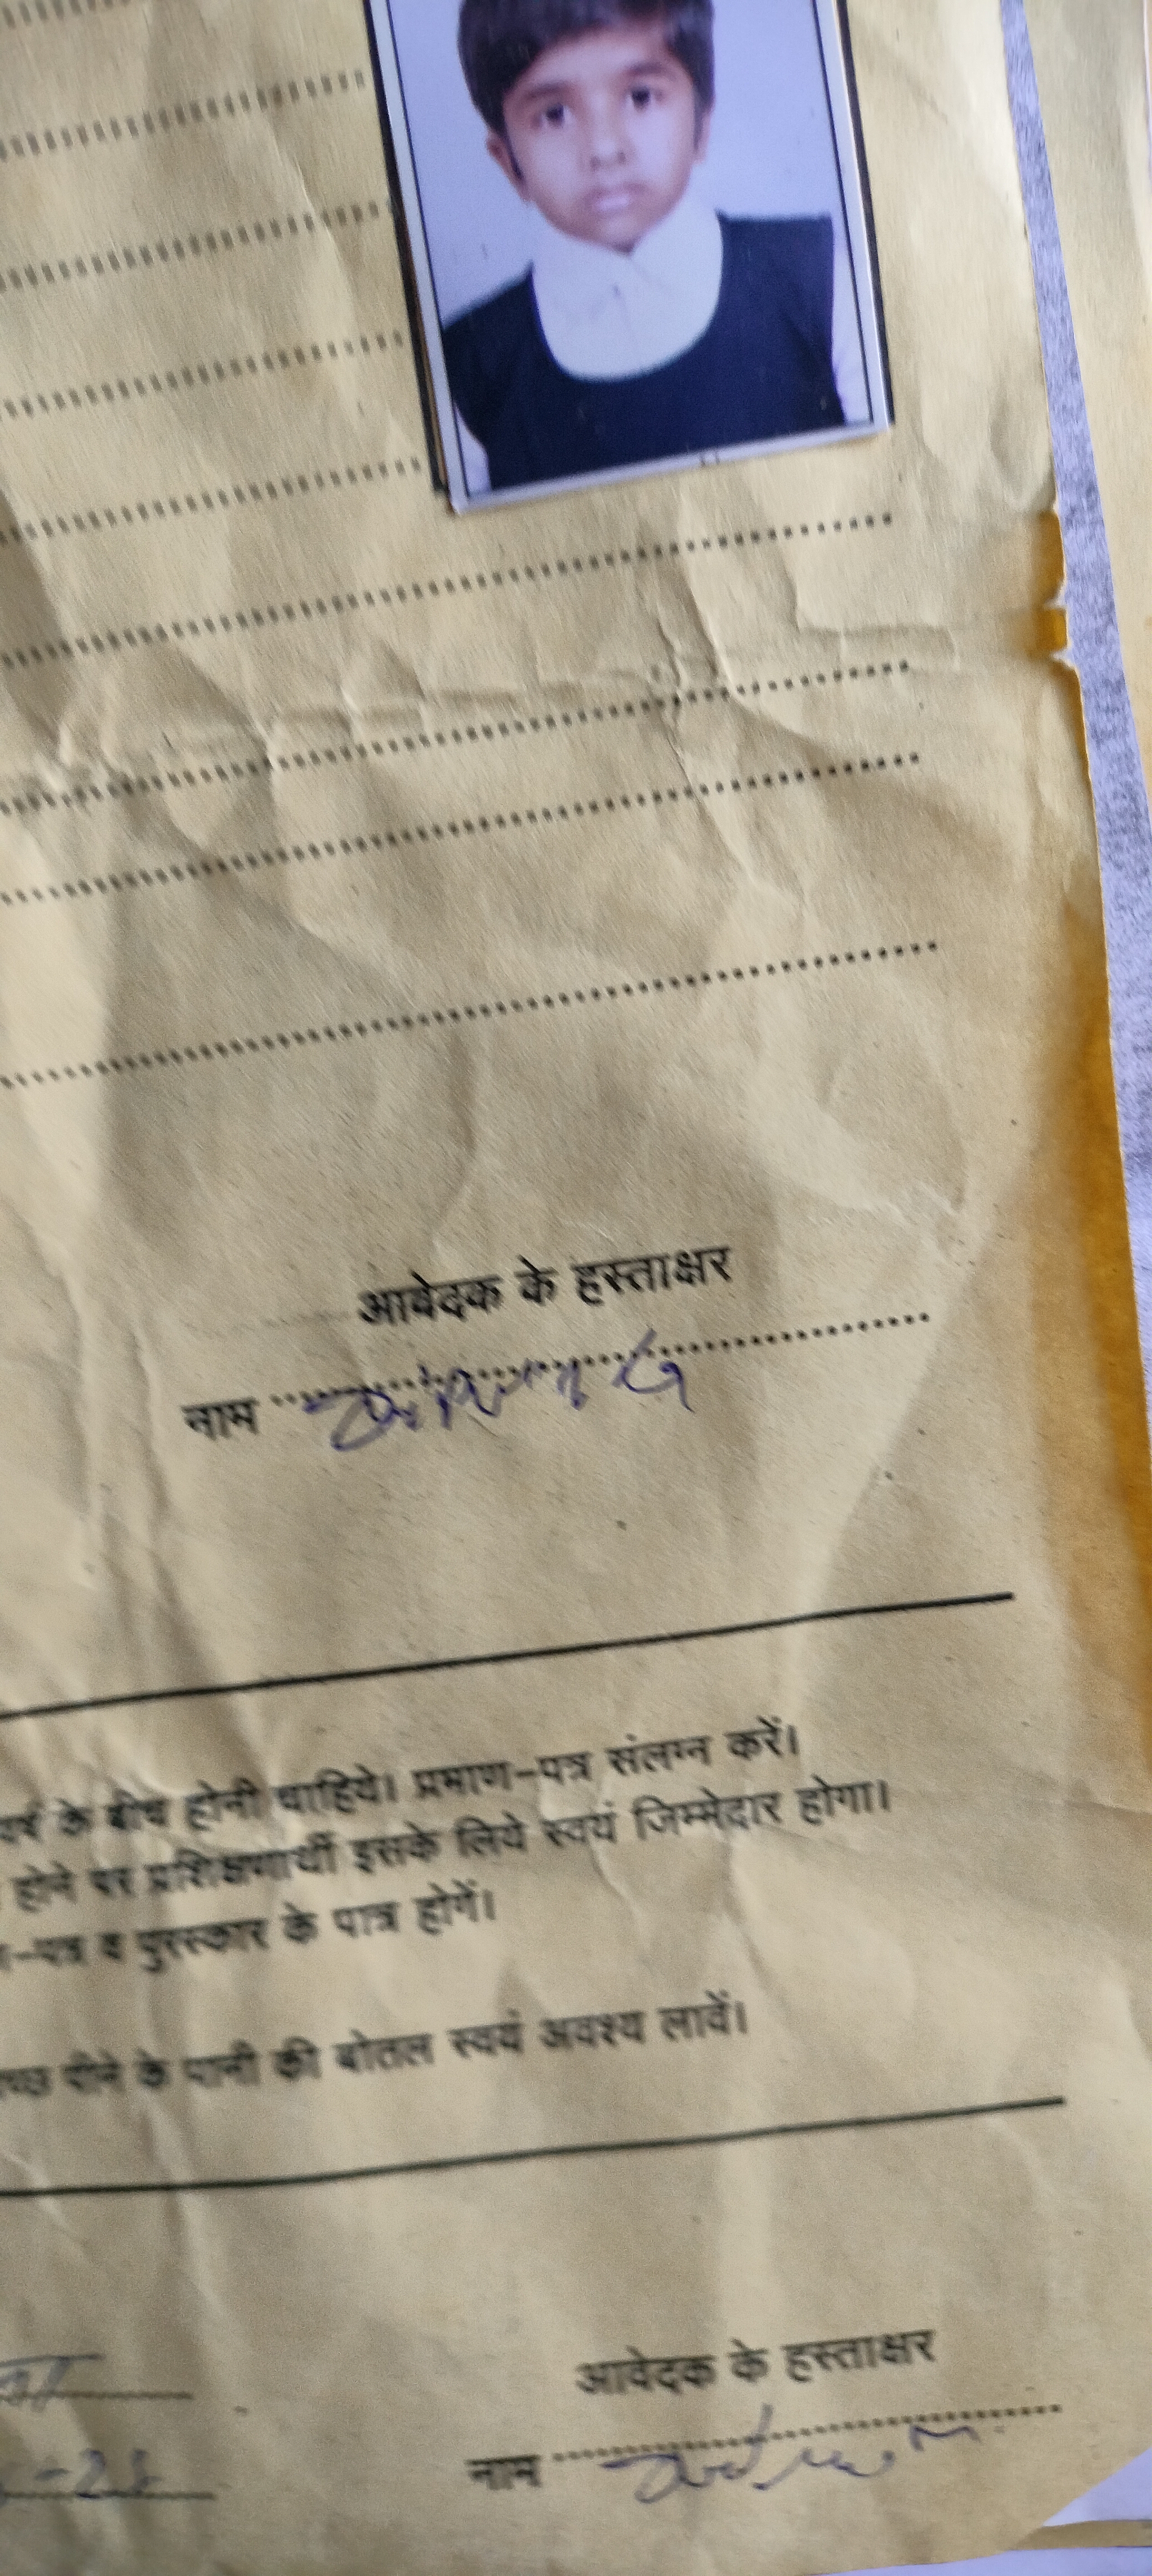 आवेदक के हस्ताक्षर
नाम
वर्ष के बीच होनी चाहिये। प्रमाण-पत्र संलग्न करें।
होने पर प्रशिक्षणार्थी इसके लिये स्वयं जिम्मेदार होगा।
-पत्र व पुरस्कार के पात्र होगें।
पीने के पानी की बोतल स्वयं अवश्य लावें।
आवेदक के हस्ताक्षर
नाम